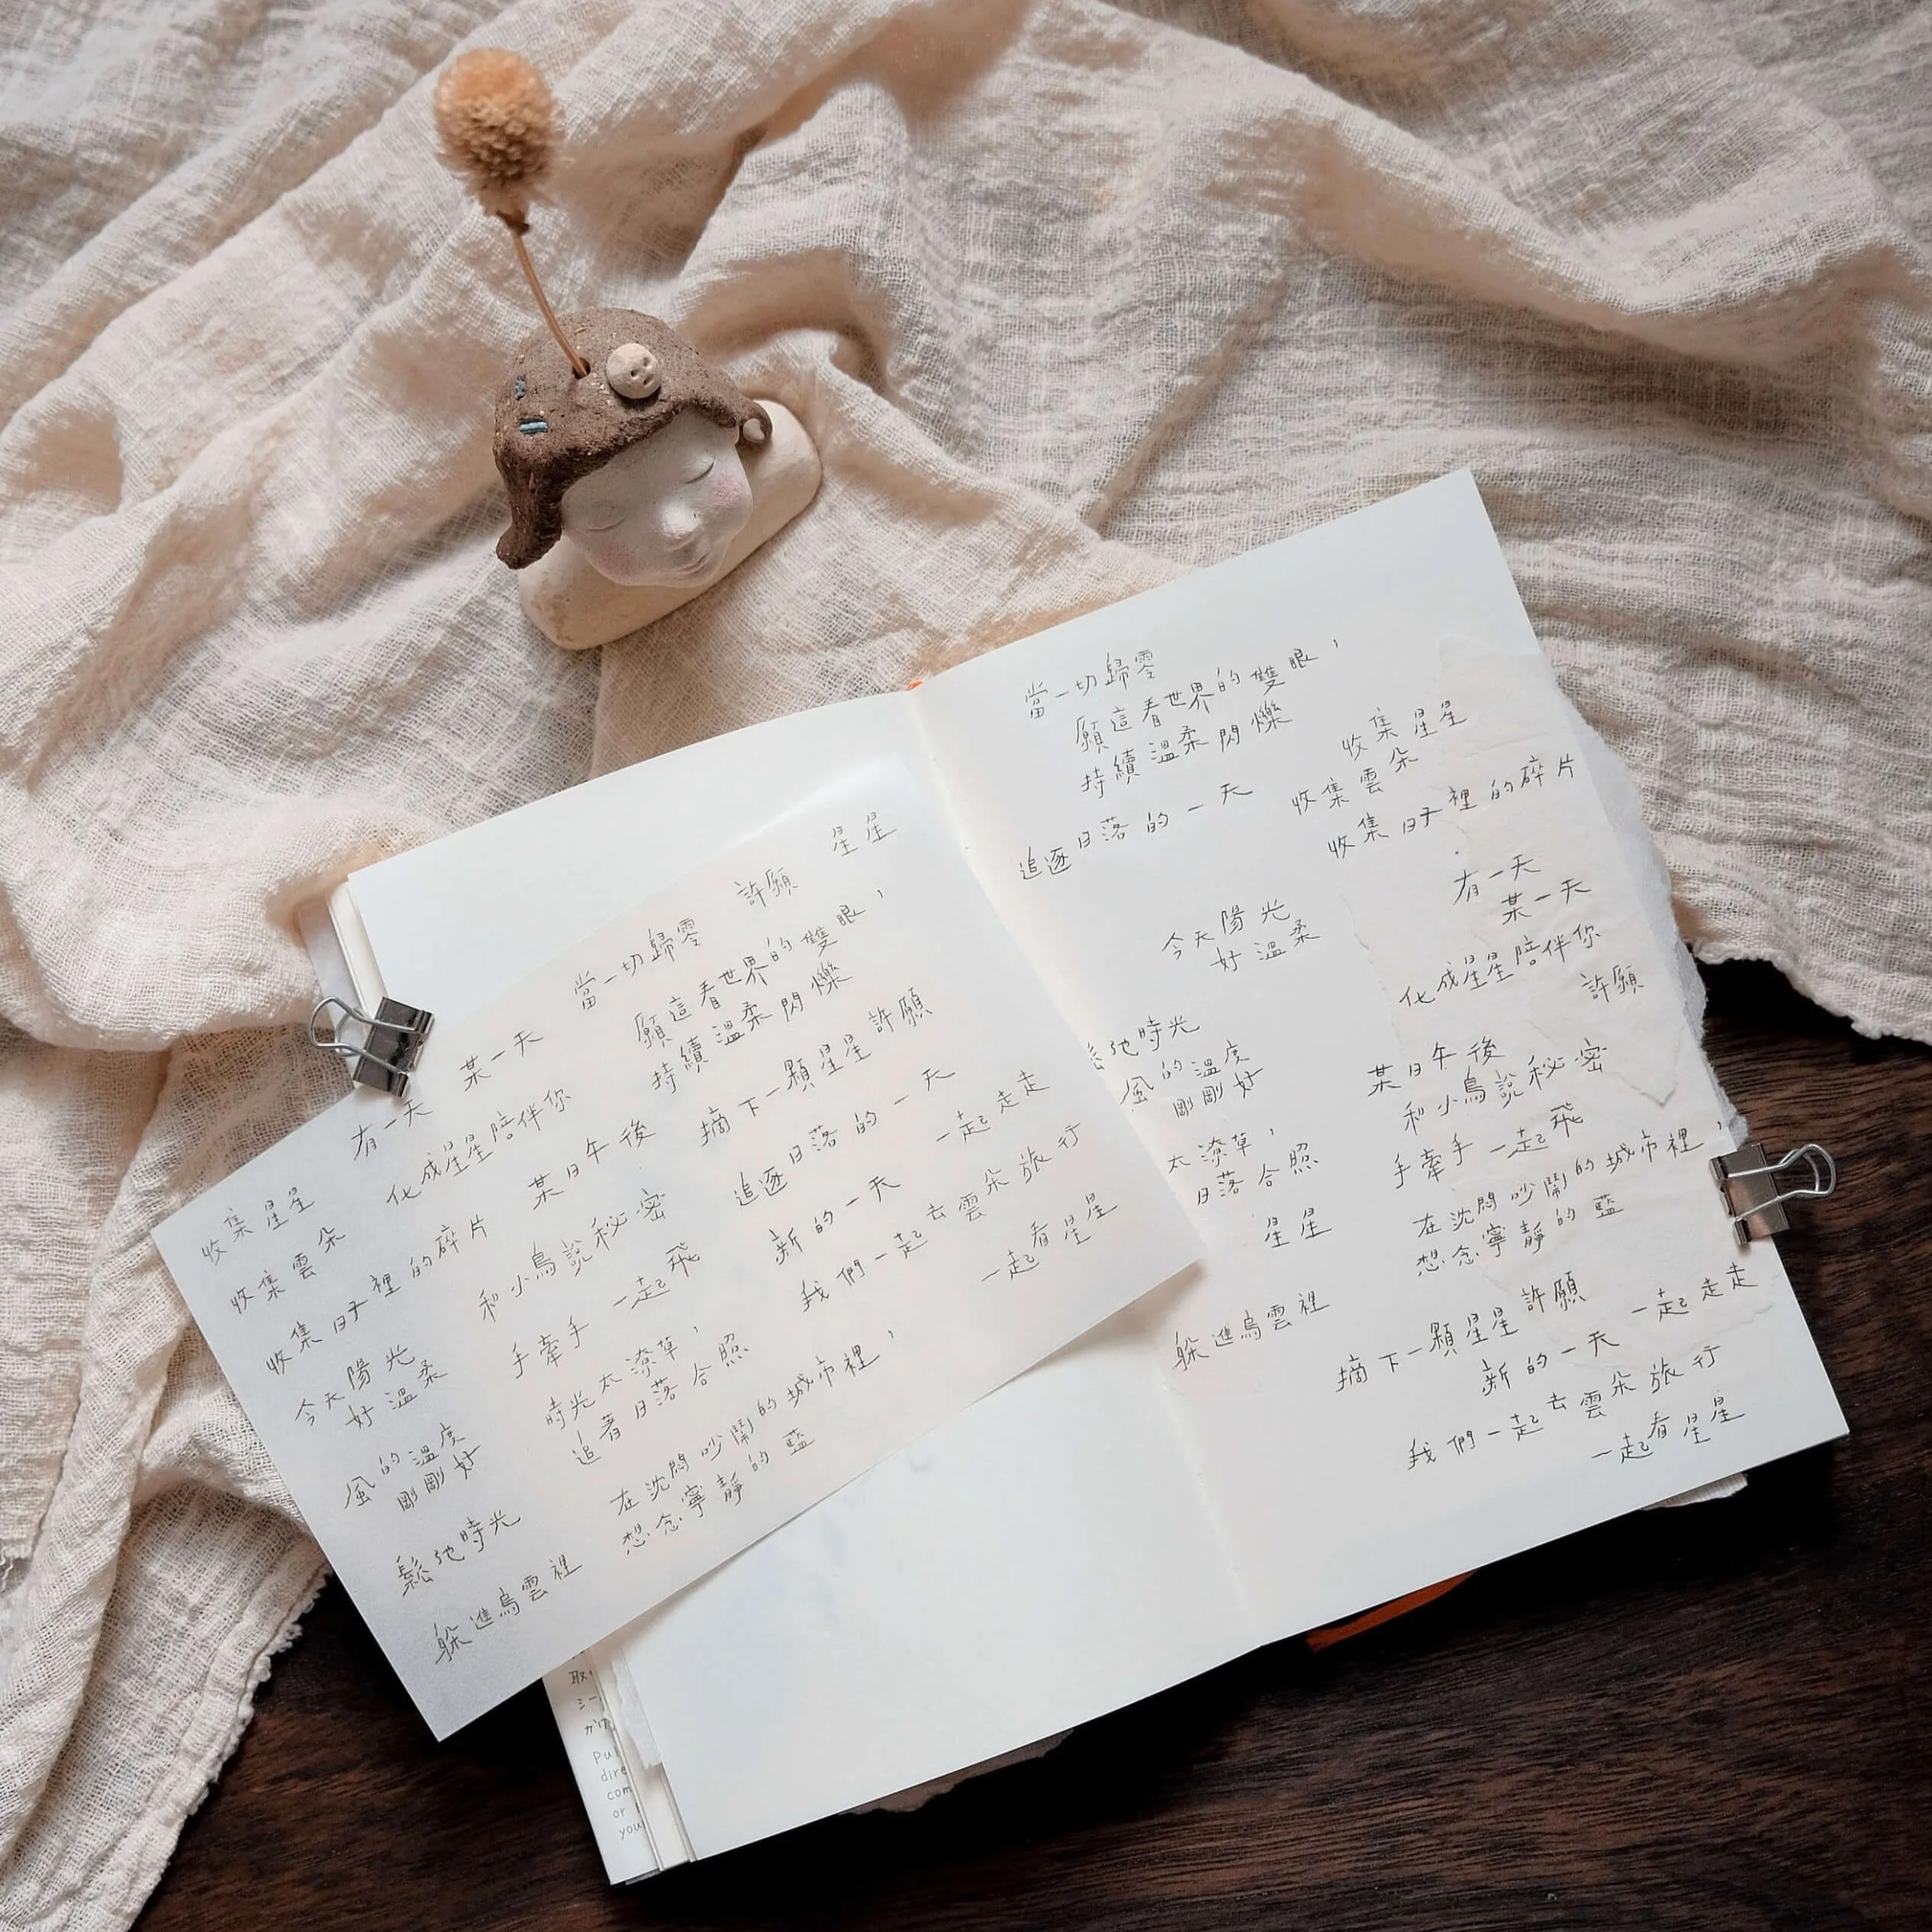 星星
許願
當一切歸零
願這看世界的雙眼，
持續溫柔閃爍
某一天
有一天
化成星星陪伴你
摘下一顆星星許願
某日午後
和小鳥說秘密
追逐日落的一天
一起走走
收集星星
收集雲朵
收集日子裡的碎片
手牽手一起飛
新的一天
我們一起去雲朵旅行
一起看星星
今天陽光
好溫柔
時光太潦草，
追著日落合照
風的溫度
剛剛好
在沈悶吵鬧的城市裡，
想念寧靜的藍
鬆弛時光
躲進烏雲裡
當一切歸零
願這看世界的雙眼，
持續溫柔閃爍
收集星星
收集雲朵
收集日子裡的碎片
追逐日落的一天
有一天
某一天
今天陽光
好溫柔
化成星星陪伴你
許願
鬆弛時光
風的溫度
剛剛好
某日午後
和小鳥說秘密
手牽手一起飛
太潦草，
日落合照
星星
在沈悶吵鬧的城市裡，
想念寧靜的藍
躲進烏雲裡
摘下一顆星星許願
一起走走
新的一天
我們一起去雲朵旅行
一起看星星
取
シー
かけ
Pul
dire
com
or
you